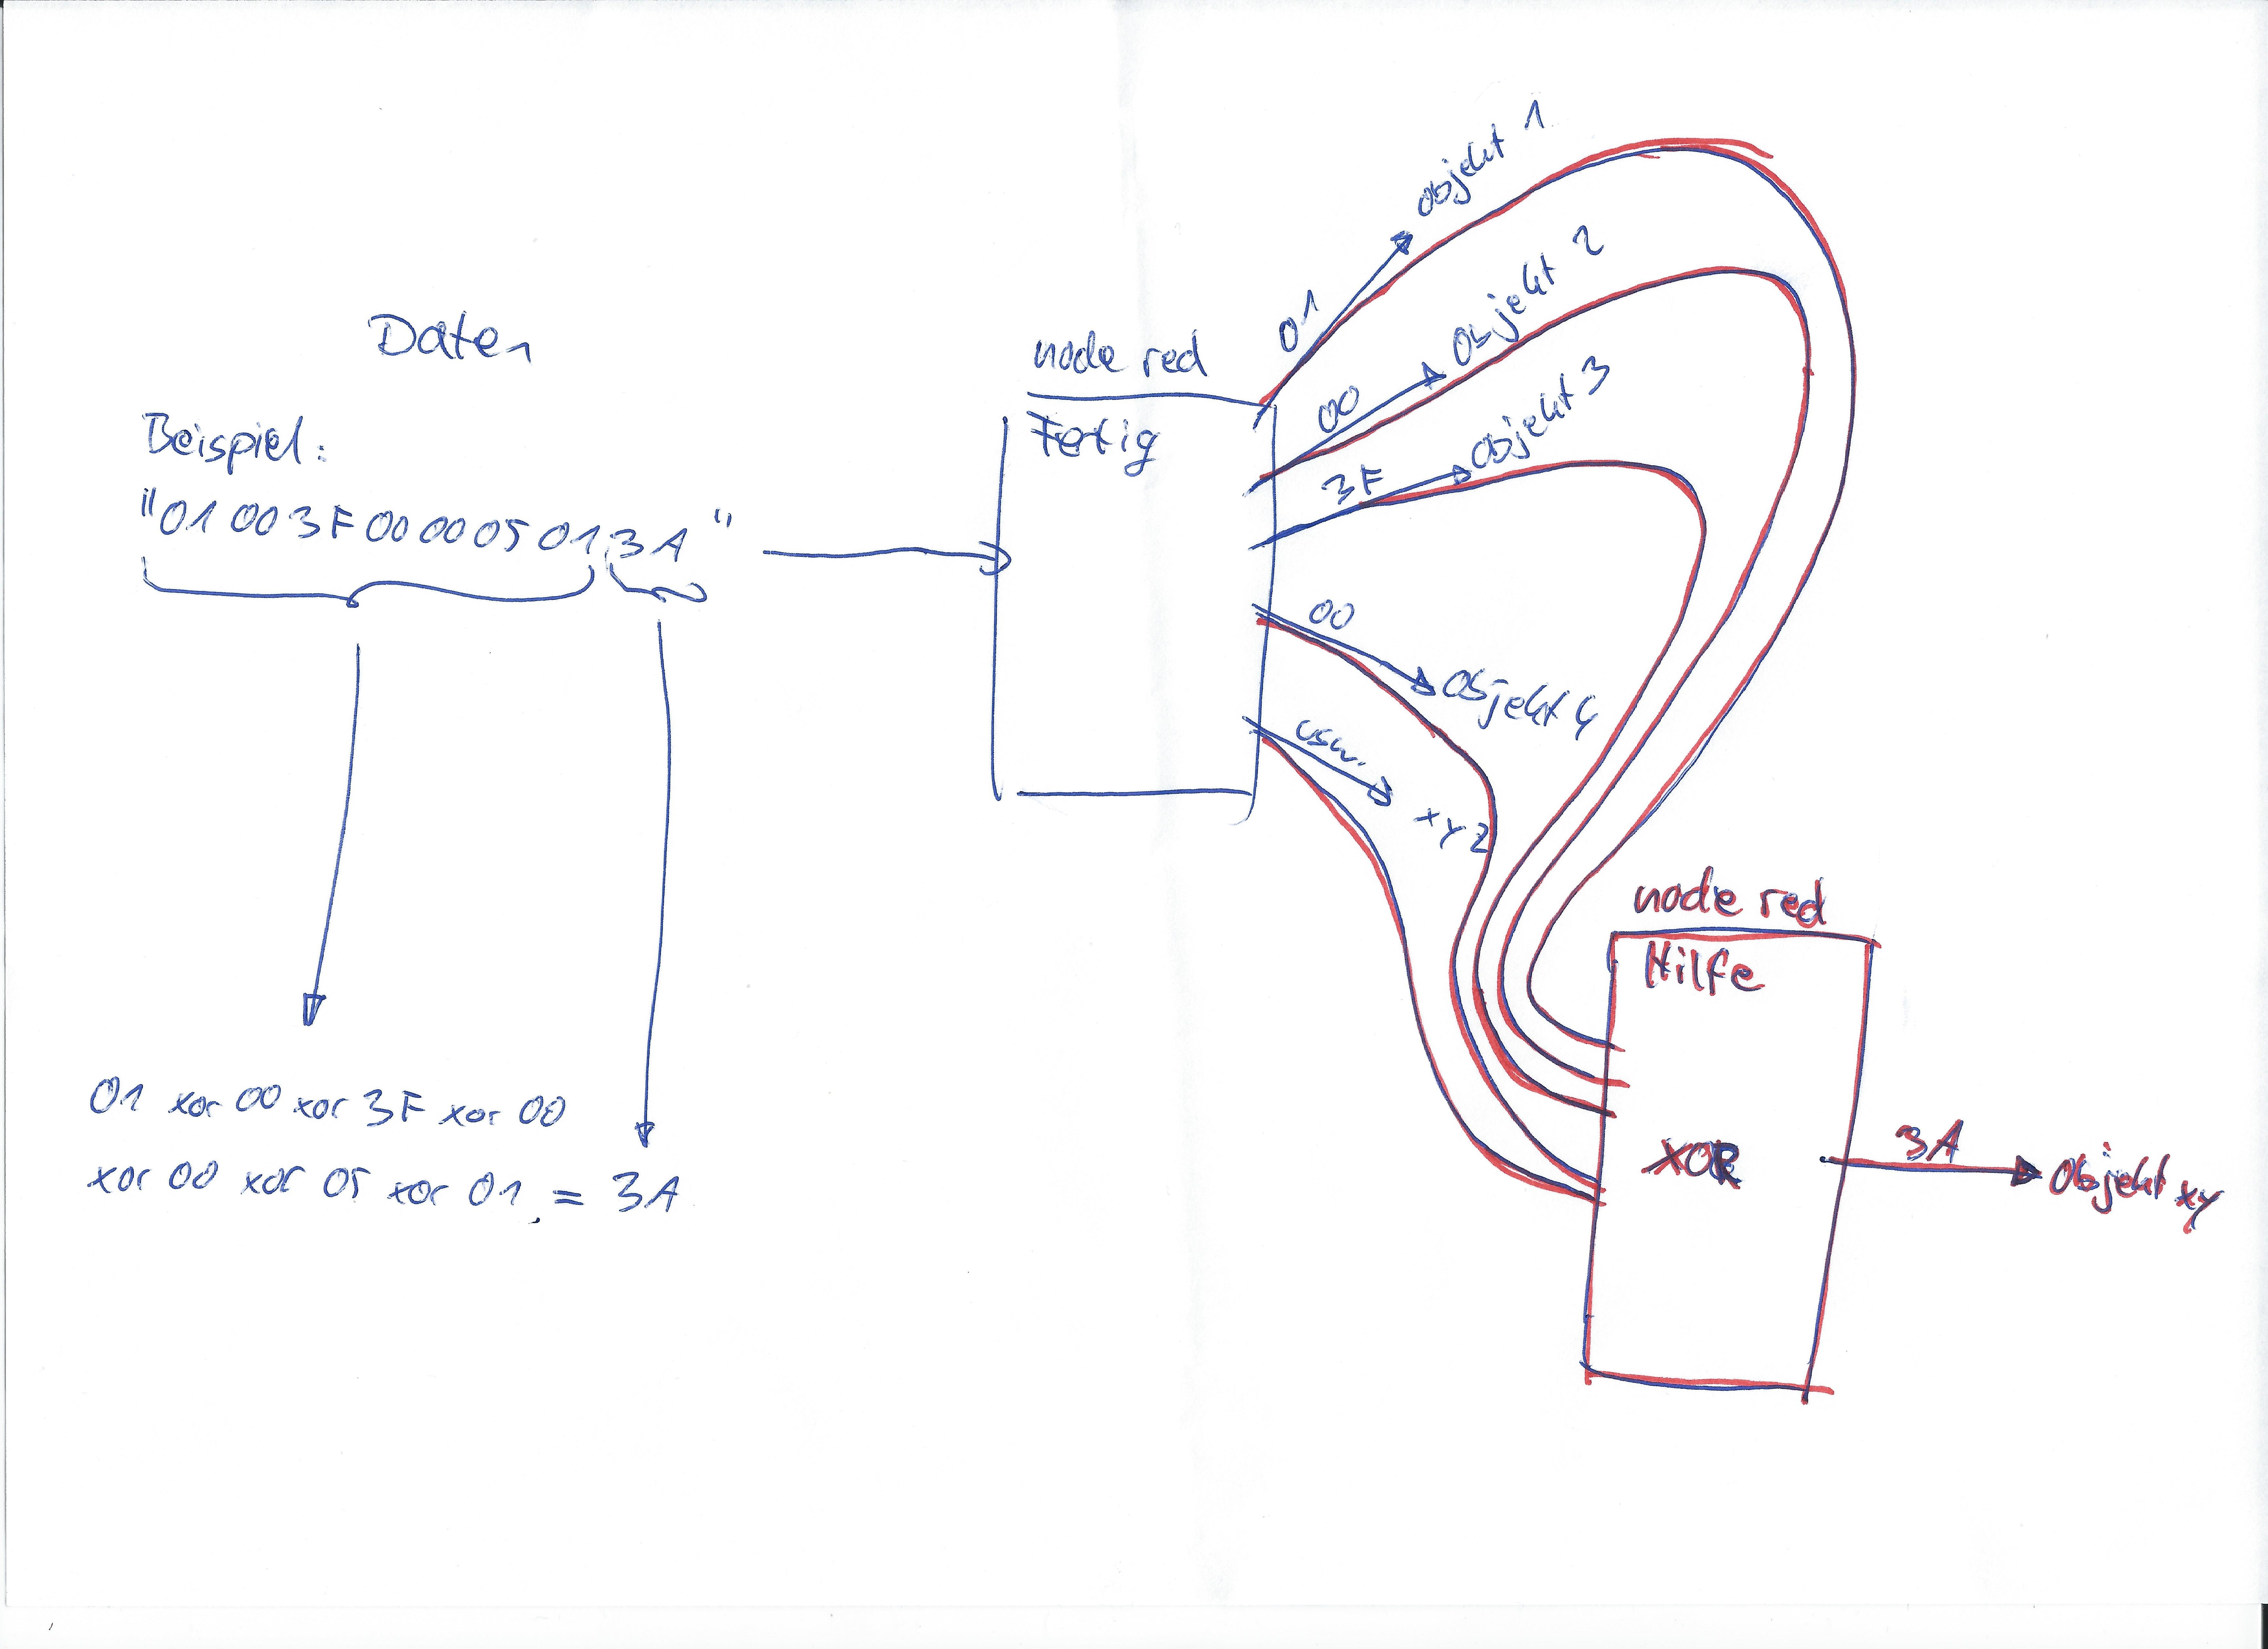 Daten
Beispiel:
"01 00 3F 00 00 05 01 3A"
01 xor 00 xor 3F xor 00
xor 00 xor 05 xor 01 = 3A
node red
Fertig
01 objekt 1
00 Objekt 2
3F objekt 3
00 objekt 4
usw. xyz
node red
Hilfe
XOR
3A Objekt xy